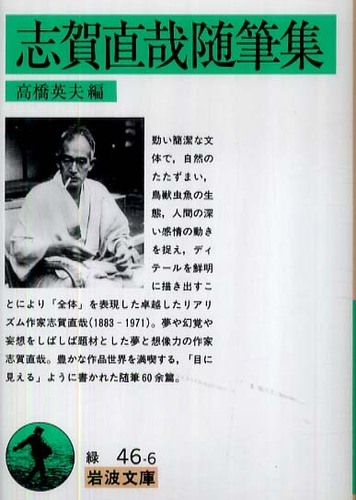 志賀直哉随筆集
高橋英夫編
勁い簡潔な文
体で，自然の
たたずまい，
鳥獣虫魚の生
態，人間の深
い感情の動き
を捉え，ディ
テールを鮮明
に描き出すこ
とにより「全体」を表現した卓越したリアリ
ズム作家志賀直哉(1883‐1971)。夢や幻覚や
妄想をしばしば題材とした夢と想像力の作家
志賀直哉。豊かな作品世界を満喫する，「目に
見える」ように書かれた随筆60余篇。
緑 46-6
岩波文庫